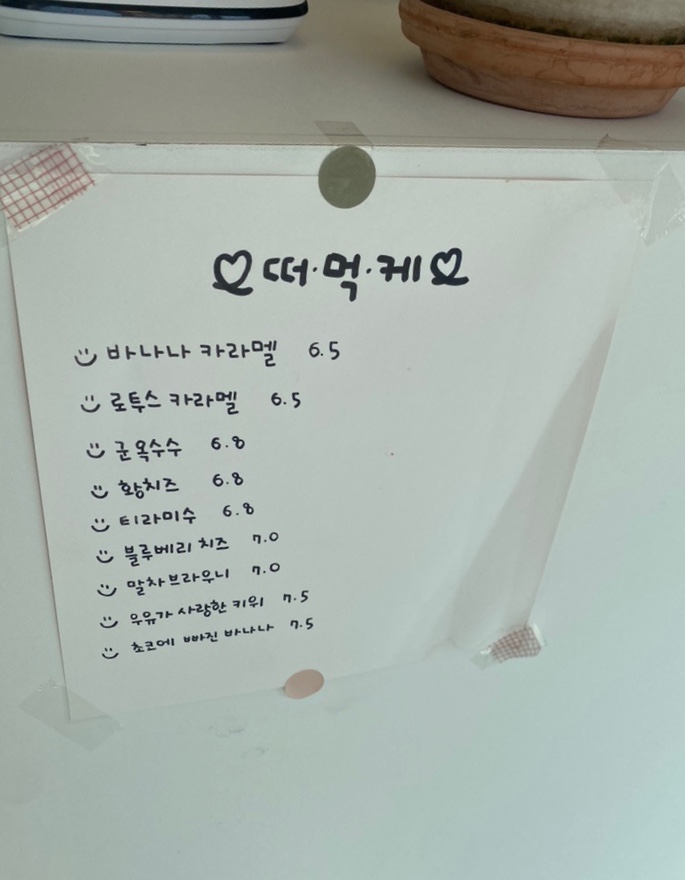 떠.먹.케
바나나 카라멜 6.5
로투스 카라멜 6.5
군옥수수 6.8
황치즈 6.8
티라미수 6.8
블루베리 치즈 7.0
말차브라우니 7.0
우유가 사랑한 키위 7.5
초코에 빠진 바나나 7.5